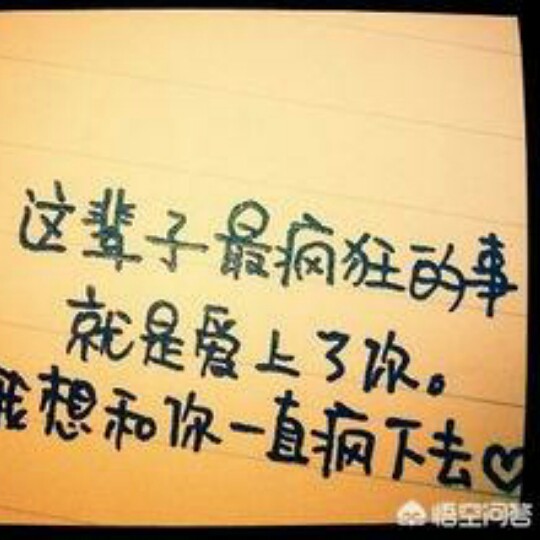 这辈子最疯狂的事
就是爱上了你。
我想和你一直疯下去♡
悟空问答